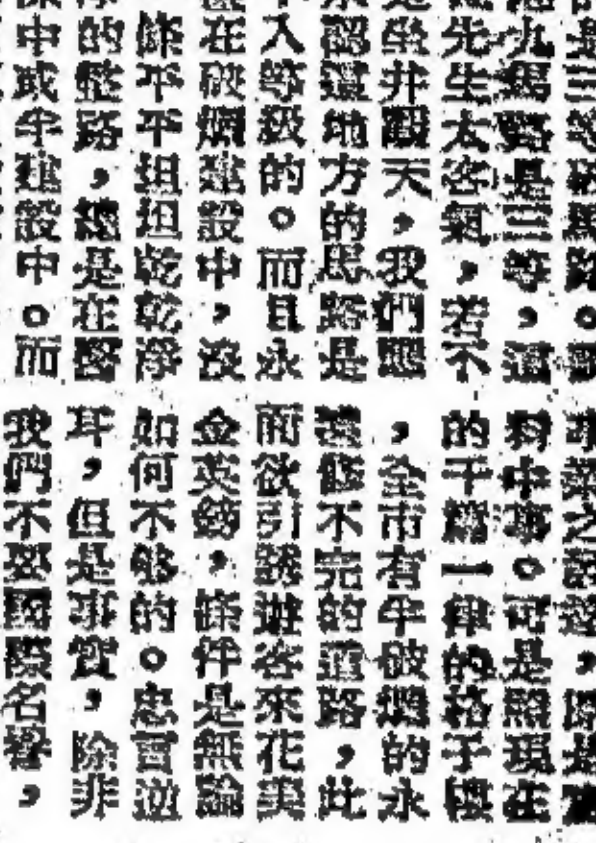 是三等
九馬路是三等，這
先生太客氣，若不
是坐井觀天，我們應
承認這地方的馬路是
入等級的。而且永
在破爛建設中，沒
條平平坦坦乾乾淨
的整路，總是在
中或半建設中。而
料中事。可是照現在
的千篇一律的格子樓
，全市有半破爛的永
遠修不完的道路，此
而欲引誘遊客來花美
金英鎊，條件是無論
如何不夠的。忠言逆
耳，但是事實，除非
我們不要國際名譽，